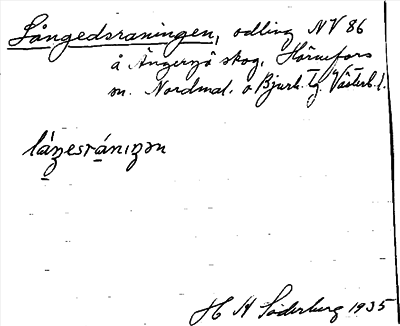 Långedsraningen, odling NV 86
å Ängersjö skog, Hörnefors
sn. Nordmal. o Bjurh. tg. Västerb. l.
láŋesránıŋən
H H Söderberg 1935